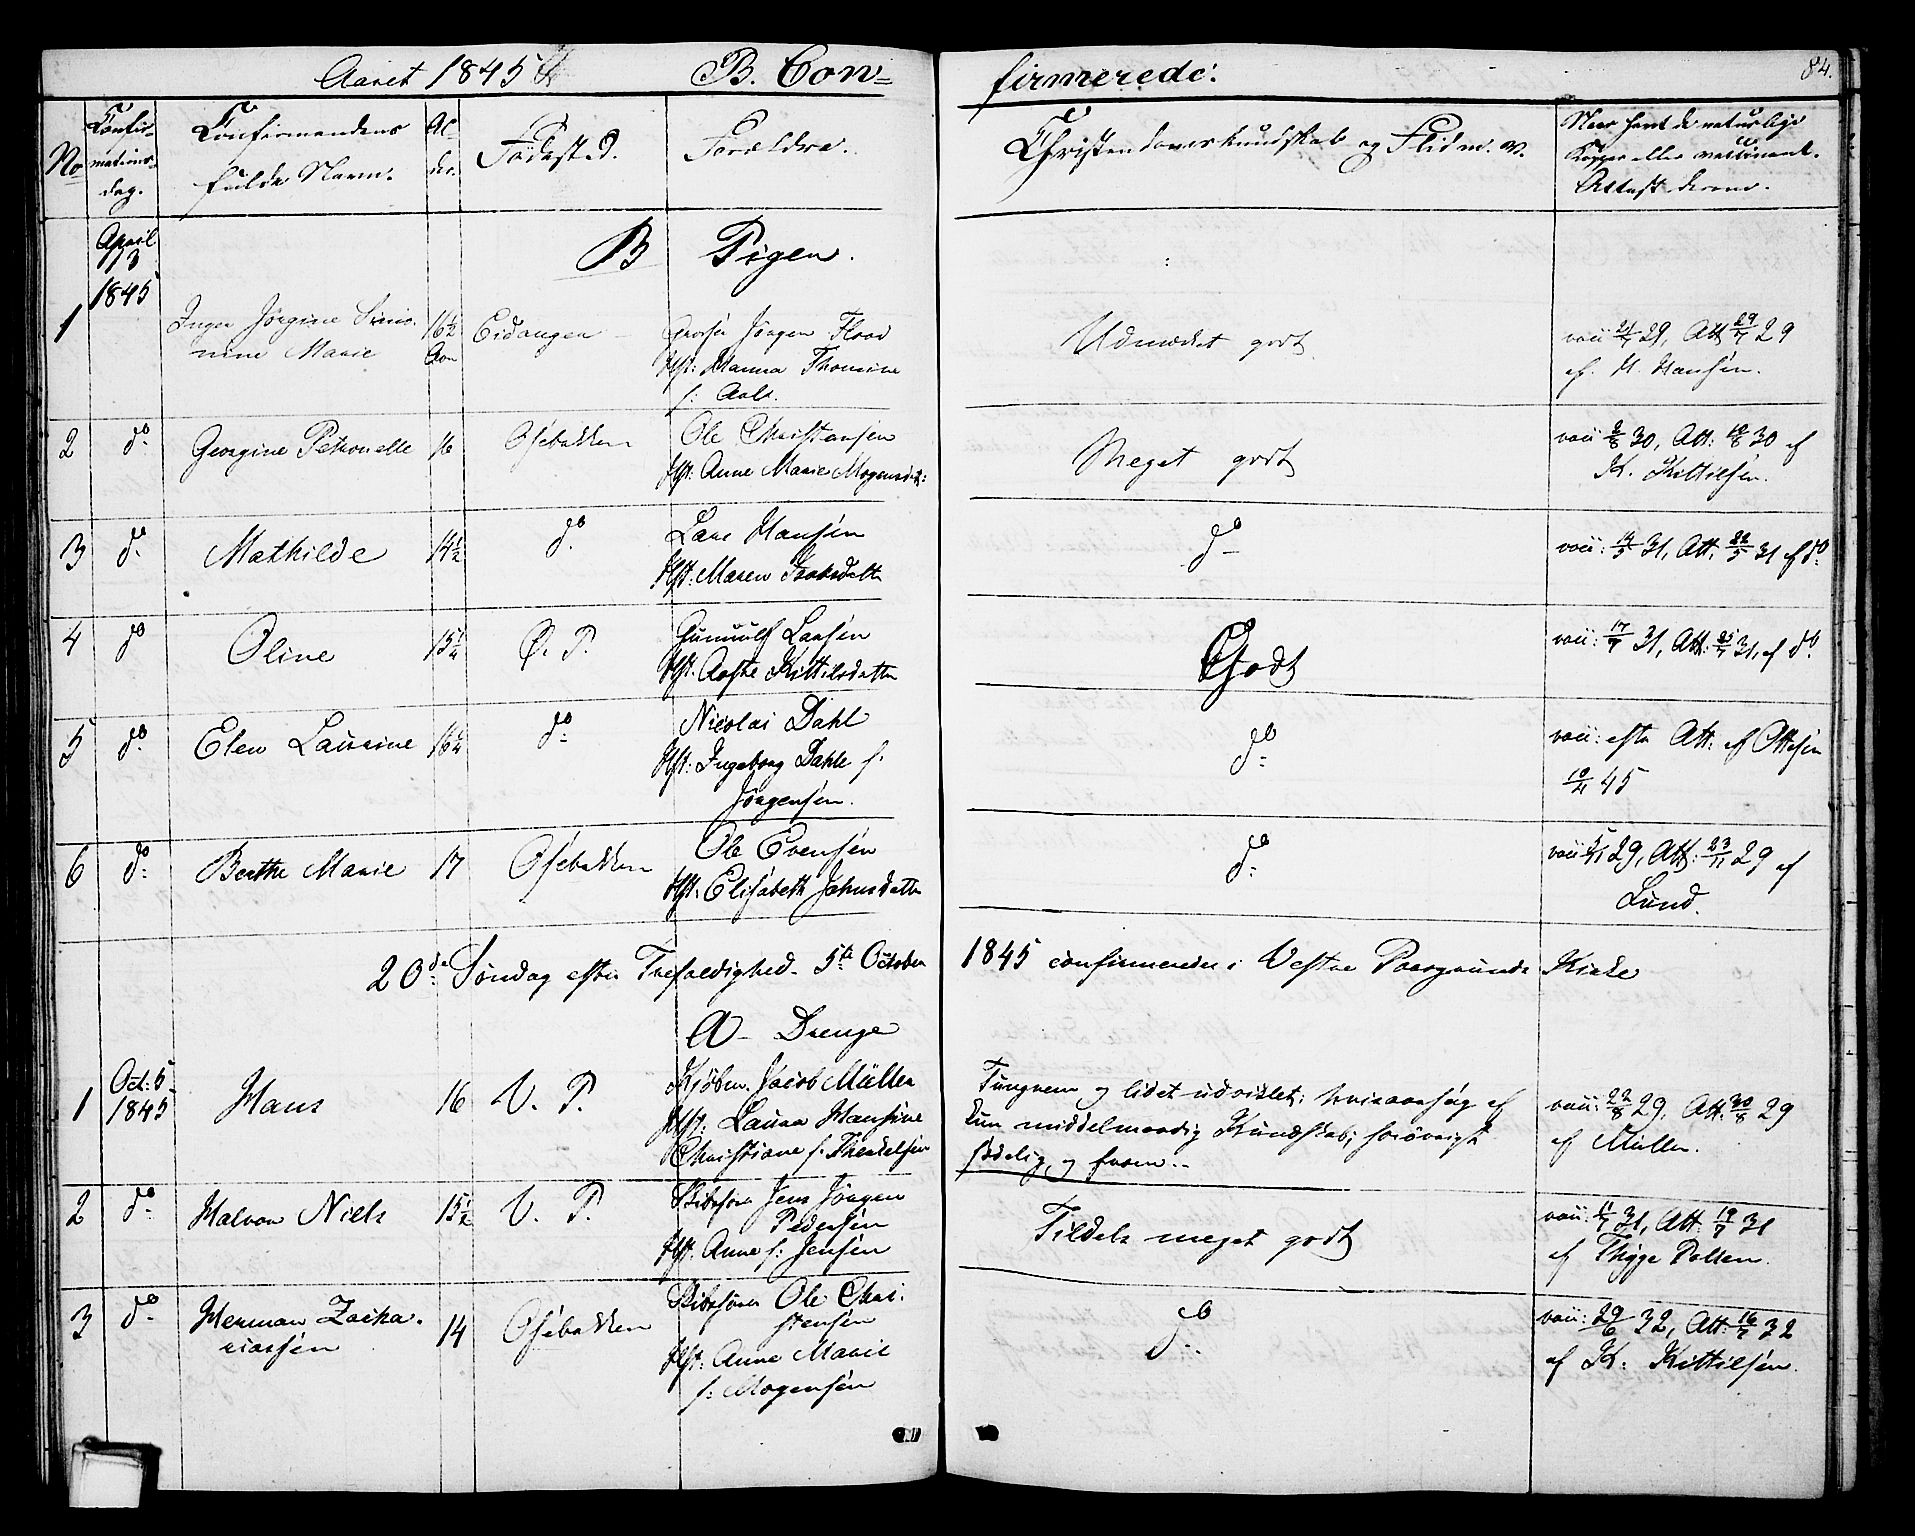 Aaret 1845 B. Con=
firmerede:
84.
No
Confir-
mations-
dag.
Confirmandens
fulde Navn.
Al-
der.
Fødested.
Forældre.
Christendomskundskab og Flid m. v.
Naar havt de naturlige
Kopper eller vaccineret.
Attest derom.
April
13
1845
B Piger.
1 Inger Jørgine Simo-
nine Marie
16½
Aar
Eidanger
Jørgen Flood
Hst: Hanna Thomine
f: Aall.
Udmærket godt
vacc: 21/7 29, Att 29/7 29
af H. Hansen.
2 do Georgine Petronelle 16 Osebakken
Ole Christensen
Hst: Anne Marie Mogensd:
Meget godt
vacc 2/8 30, Att: 10/8 30 af
K. Kittilsen.
3 do Mathilde 14½ do
Lars Hansen
Hst: Maren Isaksdatter
do
vacc: 14/5 31, Att. 22/5 31 af do
4 do Oline 15¼ Ø. P.
Gunnulf Larsen
Hst. Aaste Kittilsdatter
Godt
vacc: 17/7 31, Att: 25/7 31, af do
5 do Elen Laurine 16¼ do
Nicolai Dahl
Hst: Ingeborg Dahle f.
Jørgensen.
do
vacc: efter Att: af Ottesen
10/4 45
6 do Berthe Marie 17 Osebakken
Ole Evensen
Hst: Elisabeth Johnsdatter
do
vacc 5/11 29, Att: 23/11 29 af
Lund.
20de Søndag efter Trefoldighed 5te October 1845 confirmerede i Vestre Porsgrunds Kirke
A Drenge
1 Oct: 5
1845
Hans 16 V. P.
Kjøbm. Jacob Müller
Hst: Laura Hansine
Christiane f. Theckelsen
Tungnem og lidet udviklet; hvisaarsag af
kun middelmaadig Kundskab; forøvrigt
sædelig og from.
vacc: 22/8 29, Att: 30/8 29
af Müller.
2 do Halvor Niels 15½ V. P.
Skibsfører Jens Jørgen
Pedersen
Hst. Anne f: Jensen
Tildels meget godt
vacc: 11/7 31, Att: 19/7 31
af Thygge Poulsen.
3 do Herman Zacha-
riassen
14 Osebakken
Skibsfører Ole Chri-
stensen
Hst: Anne Marie
f: Mogensen
do
vacc: 29/6 32, Att: 16/7 32
af K. Kittilsen.